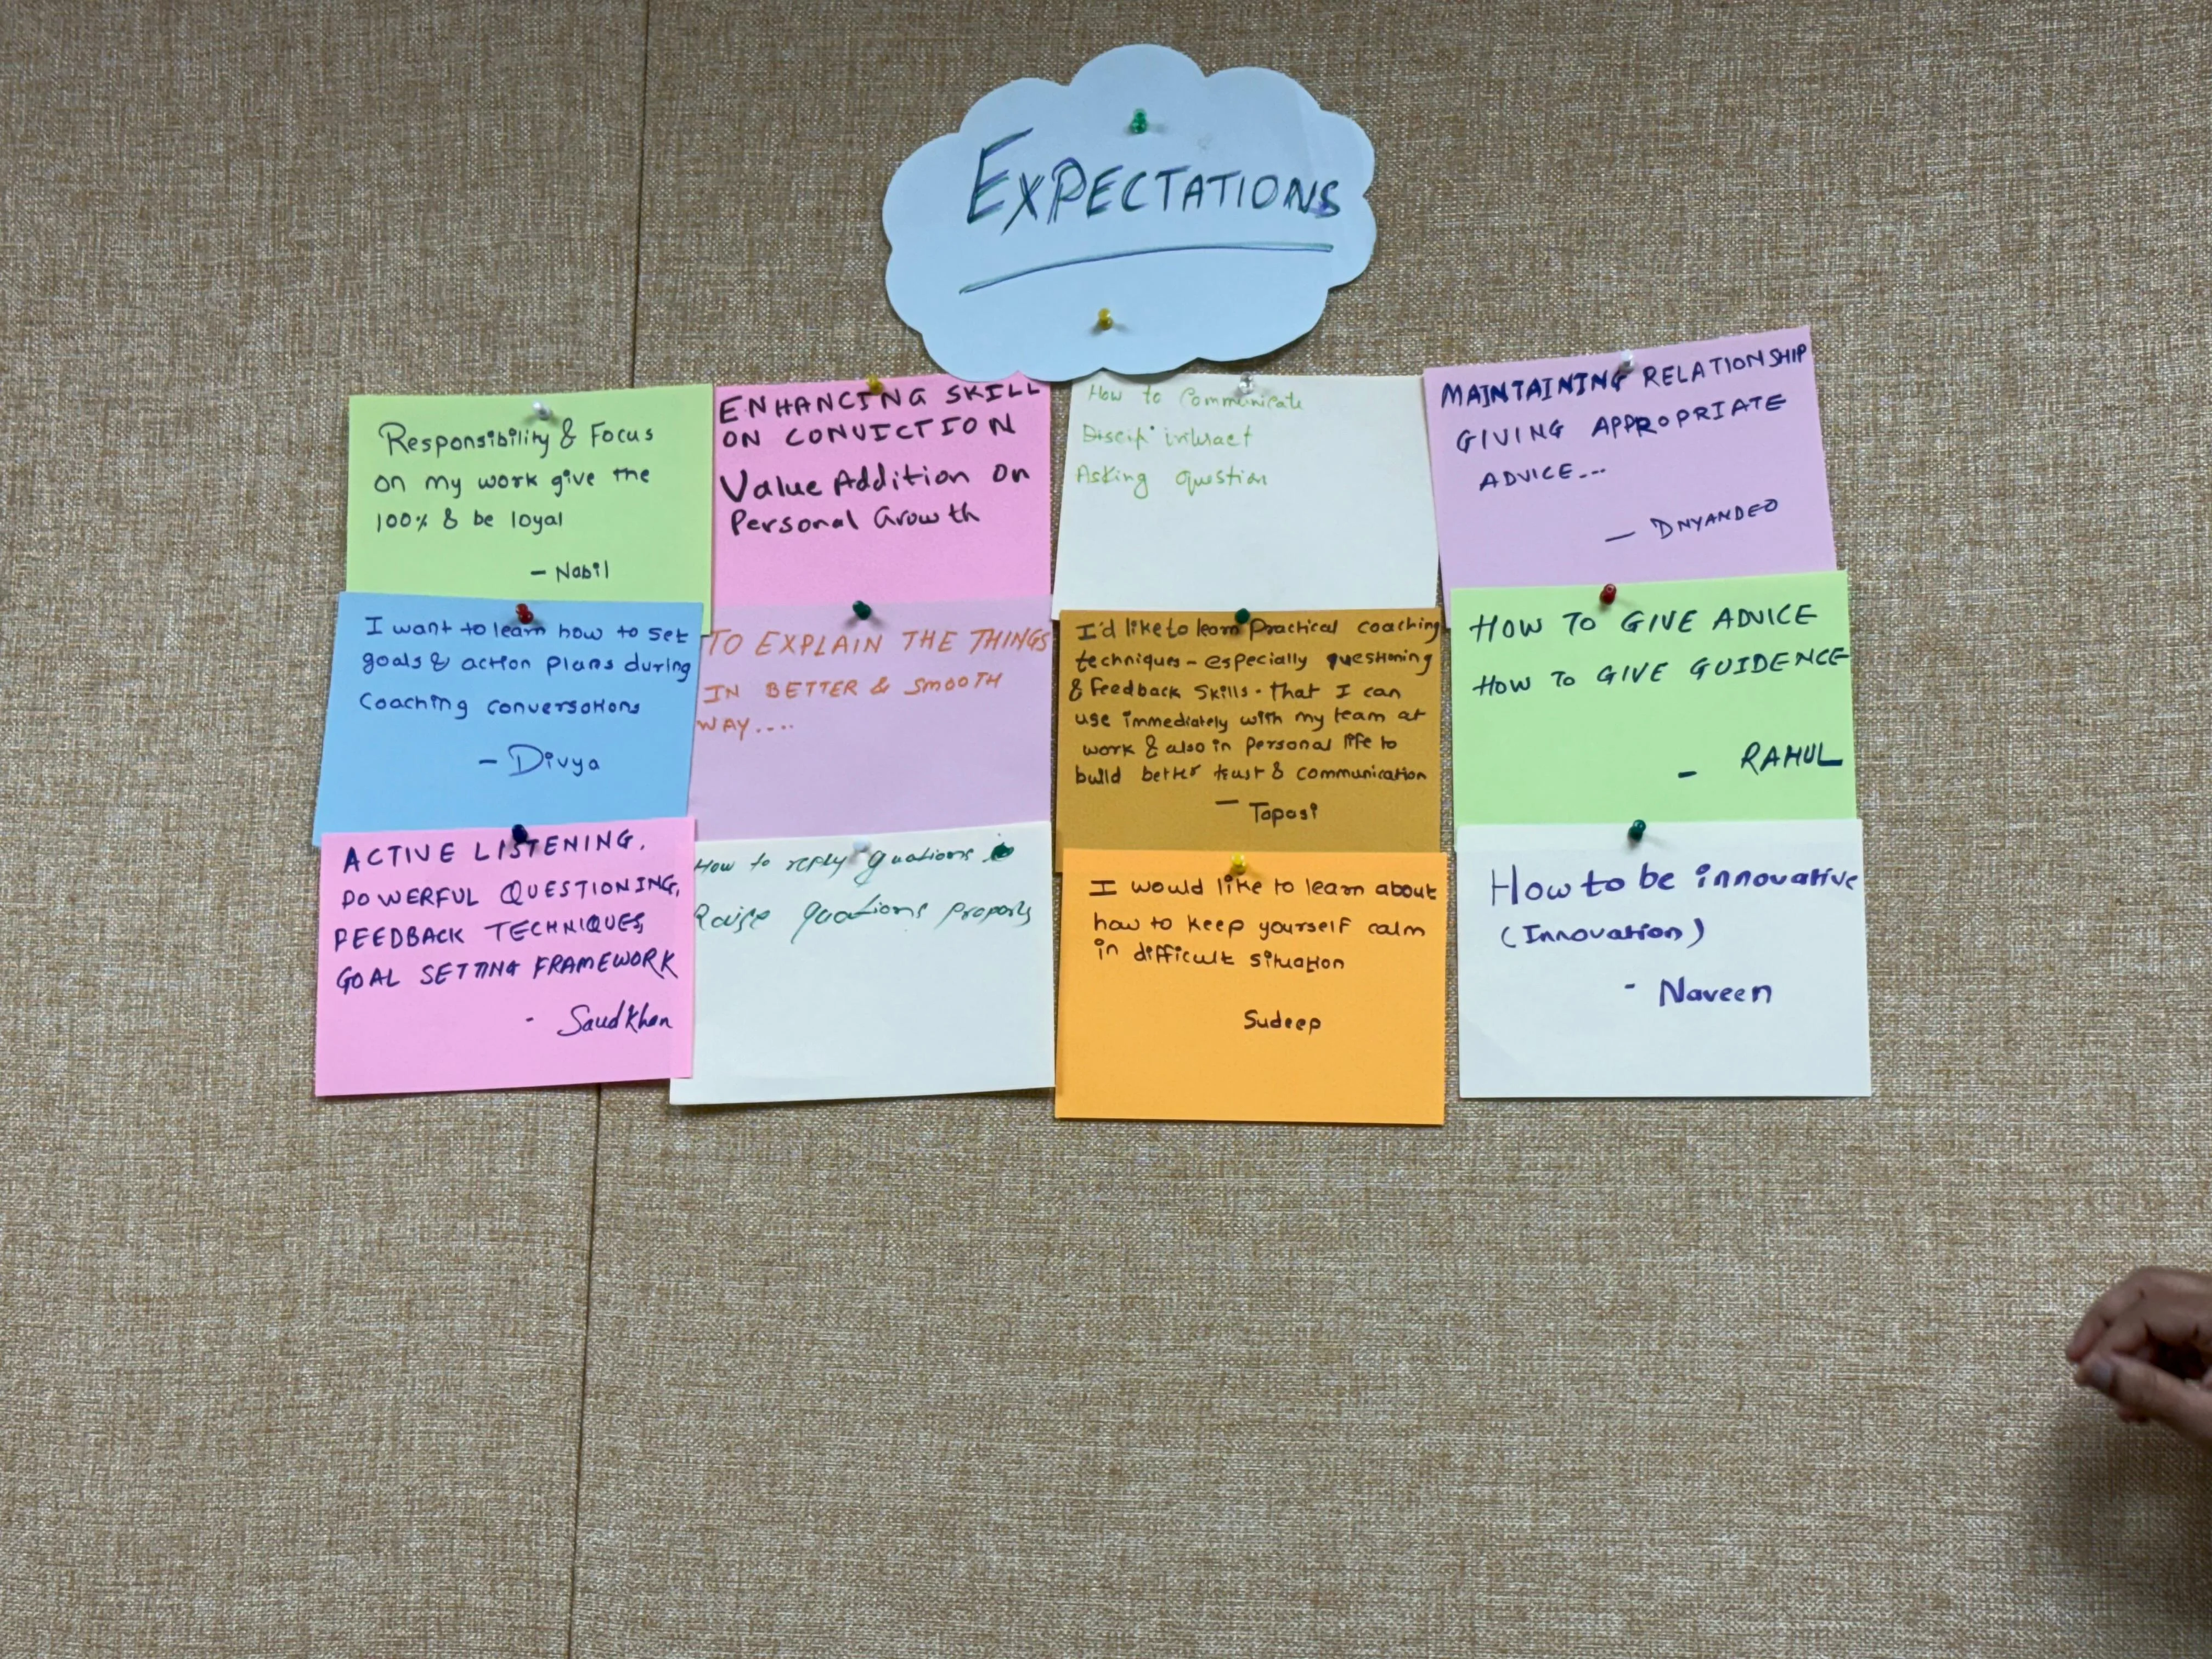 EXPECTATIONS
Responsibility & Focus
on my work give the
100% & be loyal
- Nabil
ENHANCING SKILL
ON CONVICTION
Value Addition on
Personal Growth
How to Communicate
interact
Asking question
MAINTAINING RELATIONSHIP
GIVING APPROPRIATE
ADVICE...
- DNYANDEO
I want to learn how to set
goals & action plans during
coaching conversations
- Divya
TO EXPLAIN THE THINGS
IN BETTER & SMOOTH
WAY....
I'd like to learn Practical coaching
techniques - especially questioning
& feedback skills - that I can
use immediately with my team at
work & also in personal life to
build better trust & communication
- Toposi
HOW TO GIVE ADVICE
HOW TO GIVE GUIDENCE
- RAHUL
ACTIVE LISTENING,
POWERFUL QUESTIONING,
FEEDBACK TECHNIQUES,
GOAL SETTING FRAMEWORK
- Saud Khan
How to reply quations
Raise quations properly
I would like to learn about
how to keep yourself calm
in difficult situation
Sudeep
How to be innovative
(Innovation)
- Naveen